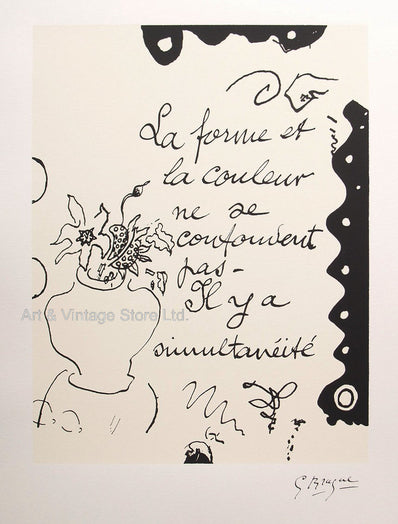 La forme et
la couleur
ne se
confondent
pas-
Il y a
simultanéité
Art & Vintage Store Ltd.
G Braque